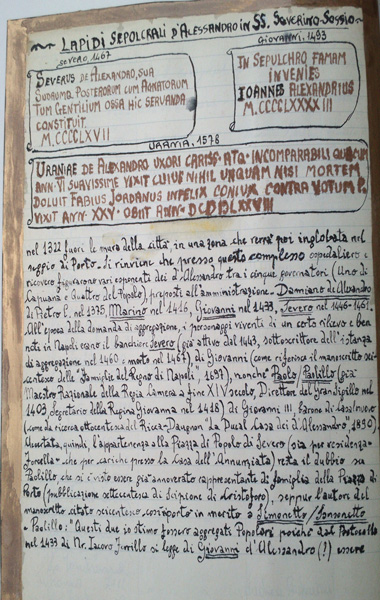 LAPIDI SEPOLCRALI D'ALESSANDRO in SS. SEVERINO-SOSSIO
SEVERO 1467
SEVERUS DE ALEXANDRO, SUA
SUORUMQ. POSTERORUM CUM AGNATORUM
TUM GENTILIUM OSSA HIC SERVANDA
CONSTITUIT
M.CCCCLXVII
GIOVANNI, 1493
IN SEPULCHRO FAMAM
INVENIES
IOANNES ALEXANDRIUS
M.CCCCLXXXXIII
URANIA, 1578
URANIAE DE ALEXANDRO UXORI CARISS. ATQ. INCOMPARABILI QUACUM
ANN. VI SUAVISSIME VIXIT CUIUS NIHIL UNQUAM NISI MORTEM
DOLUIT FABIUS JORDANUS INFELIX CONIUX CONTRA VOTUM P.
VIXIT ANN. XXV. OBIIT ANN.
nel 1322 fuori le mura della città in una zona che verrà poi inglobata nel
seggio di Porto. Si rinviene che presso questo complesso ospedaliero e
ricovero figurarono vari esponenti dei d'Alessandro tra i cinque governatori (Uno di
Capuana e Quattro del Popolo), preposti all'amministrazione: Damiano de Alexandro
di Pietro C. nel 1375, Marino nel 1416, Giovanni nel 1433, Severo nel 1446-1461.
All'epoca della domanda di aggregazione, i personaggi viventi di un certo rilievo e ben
noti in Napoli erano il banchiere Severo (già attivo dal 1443, sottoscrittore dell'istanza
di aggregazione nel 1460 e morto nel 1467), di Giovanni (come riferisce il manoscritto sei-
centesco delle "Famiglie del Regno di Napoli", 1697), nonché Paolo/Palillo (già
Maestro Razionale della Regia Camera a fine XIV secolo, Direttore del Gran Sigillo nel
1403, Segretario della Regina Giovanna nel 1418) di Giovanni III, barone di Casalnuovo
(come da ricerca ottocentesca del Ricca-Dragnon "La Ducal Casa dei d'Alessandro", 1890).
Accertata, quindi, l'appartenenza alla Piazza di Popolo di Severo (sia per residenza-
Forcella- che per cariche presso la Casa dell'Annunziata) resta il dubbio su
Paolillo, che si è visto essere già annoverato rappresentante di famiglia della Piazza di
Porto (pubblicazione settecentesca di Scipione di Cristoforo), seppur l'autore del
manoscritto citato seicentesco, così riporta in merito a Simonetto/Sansonetto
-Paolillo: "Questi due io stimo fossero aggregati Popolari poiché dal Protocollo
nel 1433 di Nr. Iacovo Ferrillo si legge di Giovanni d'Alessandro (!) essere